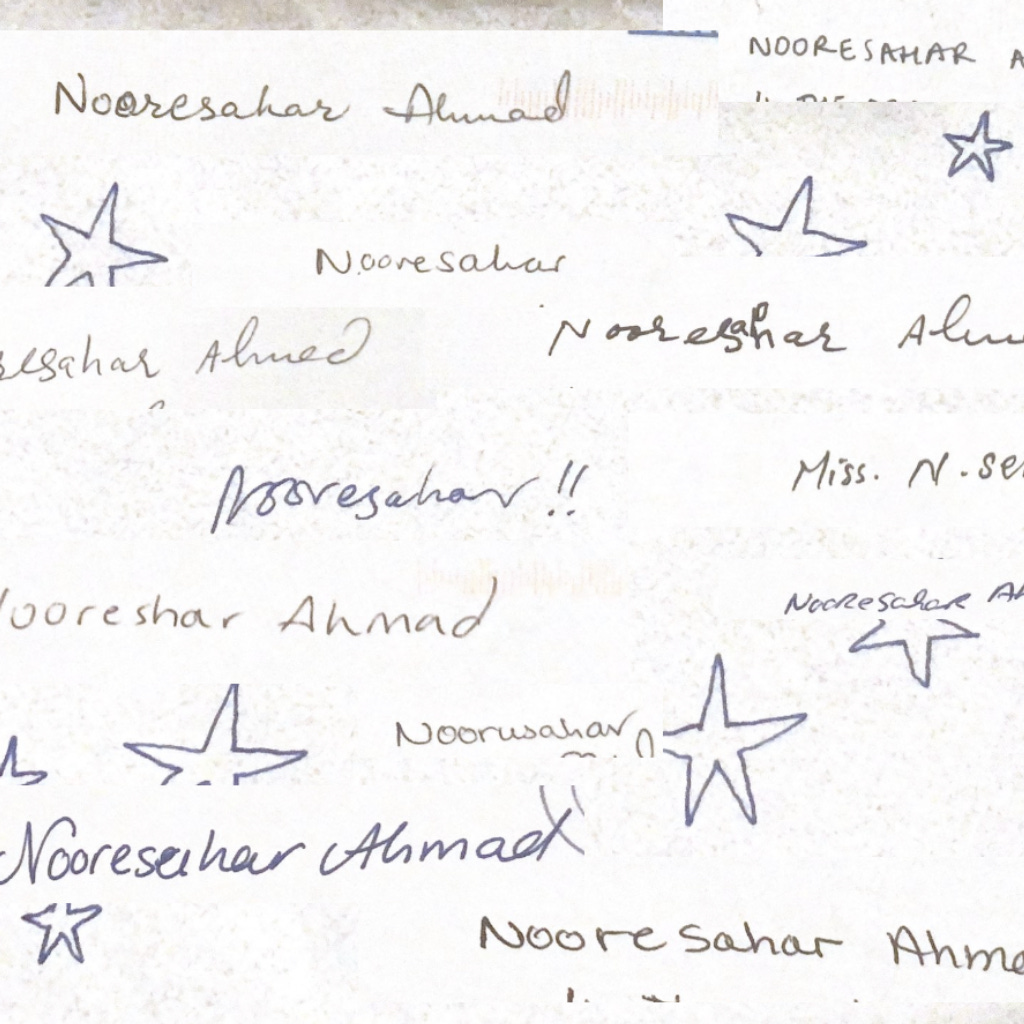 NOORESAHAR
Nooresahar Ahmad
Nooresahar
resahar Ahmed
Nooresahar
Miss. N.
Nooresahar !!
Nooreshar Ahmad
Nooresahar
Noorusahar
Nooresahar Ahmad
Noore Sahar